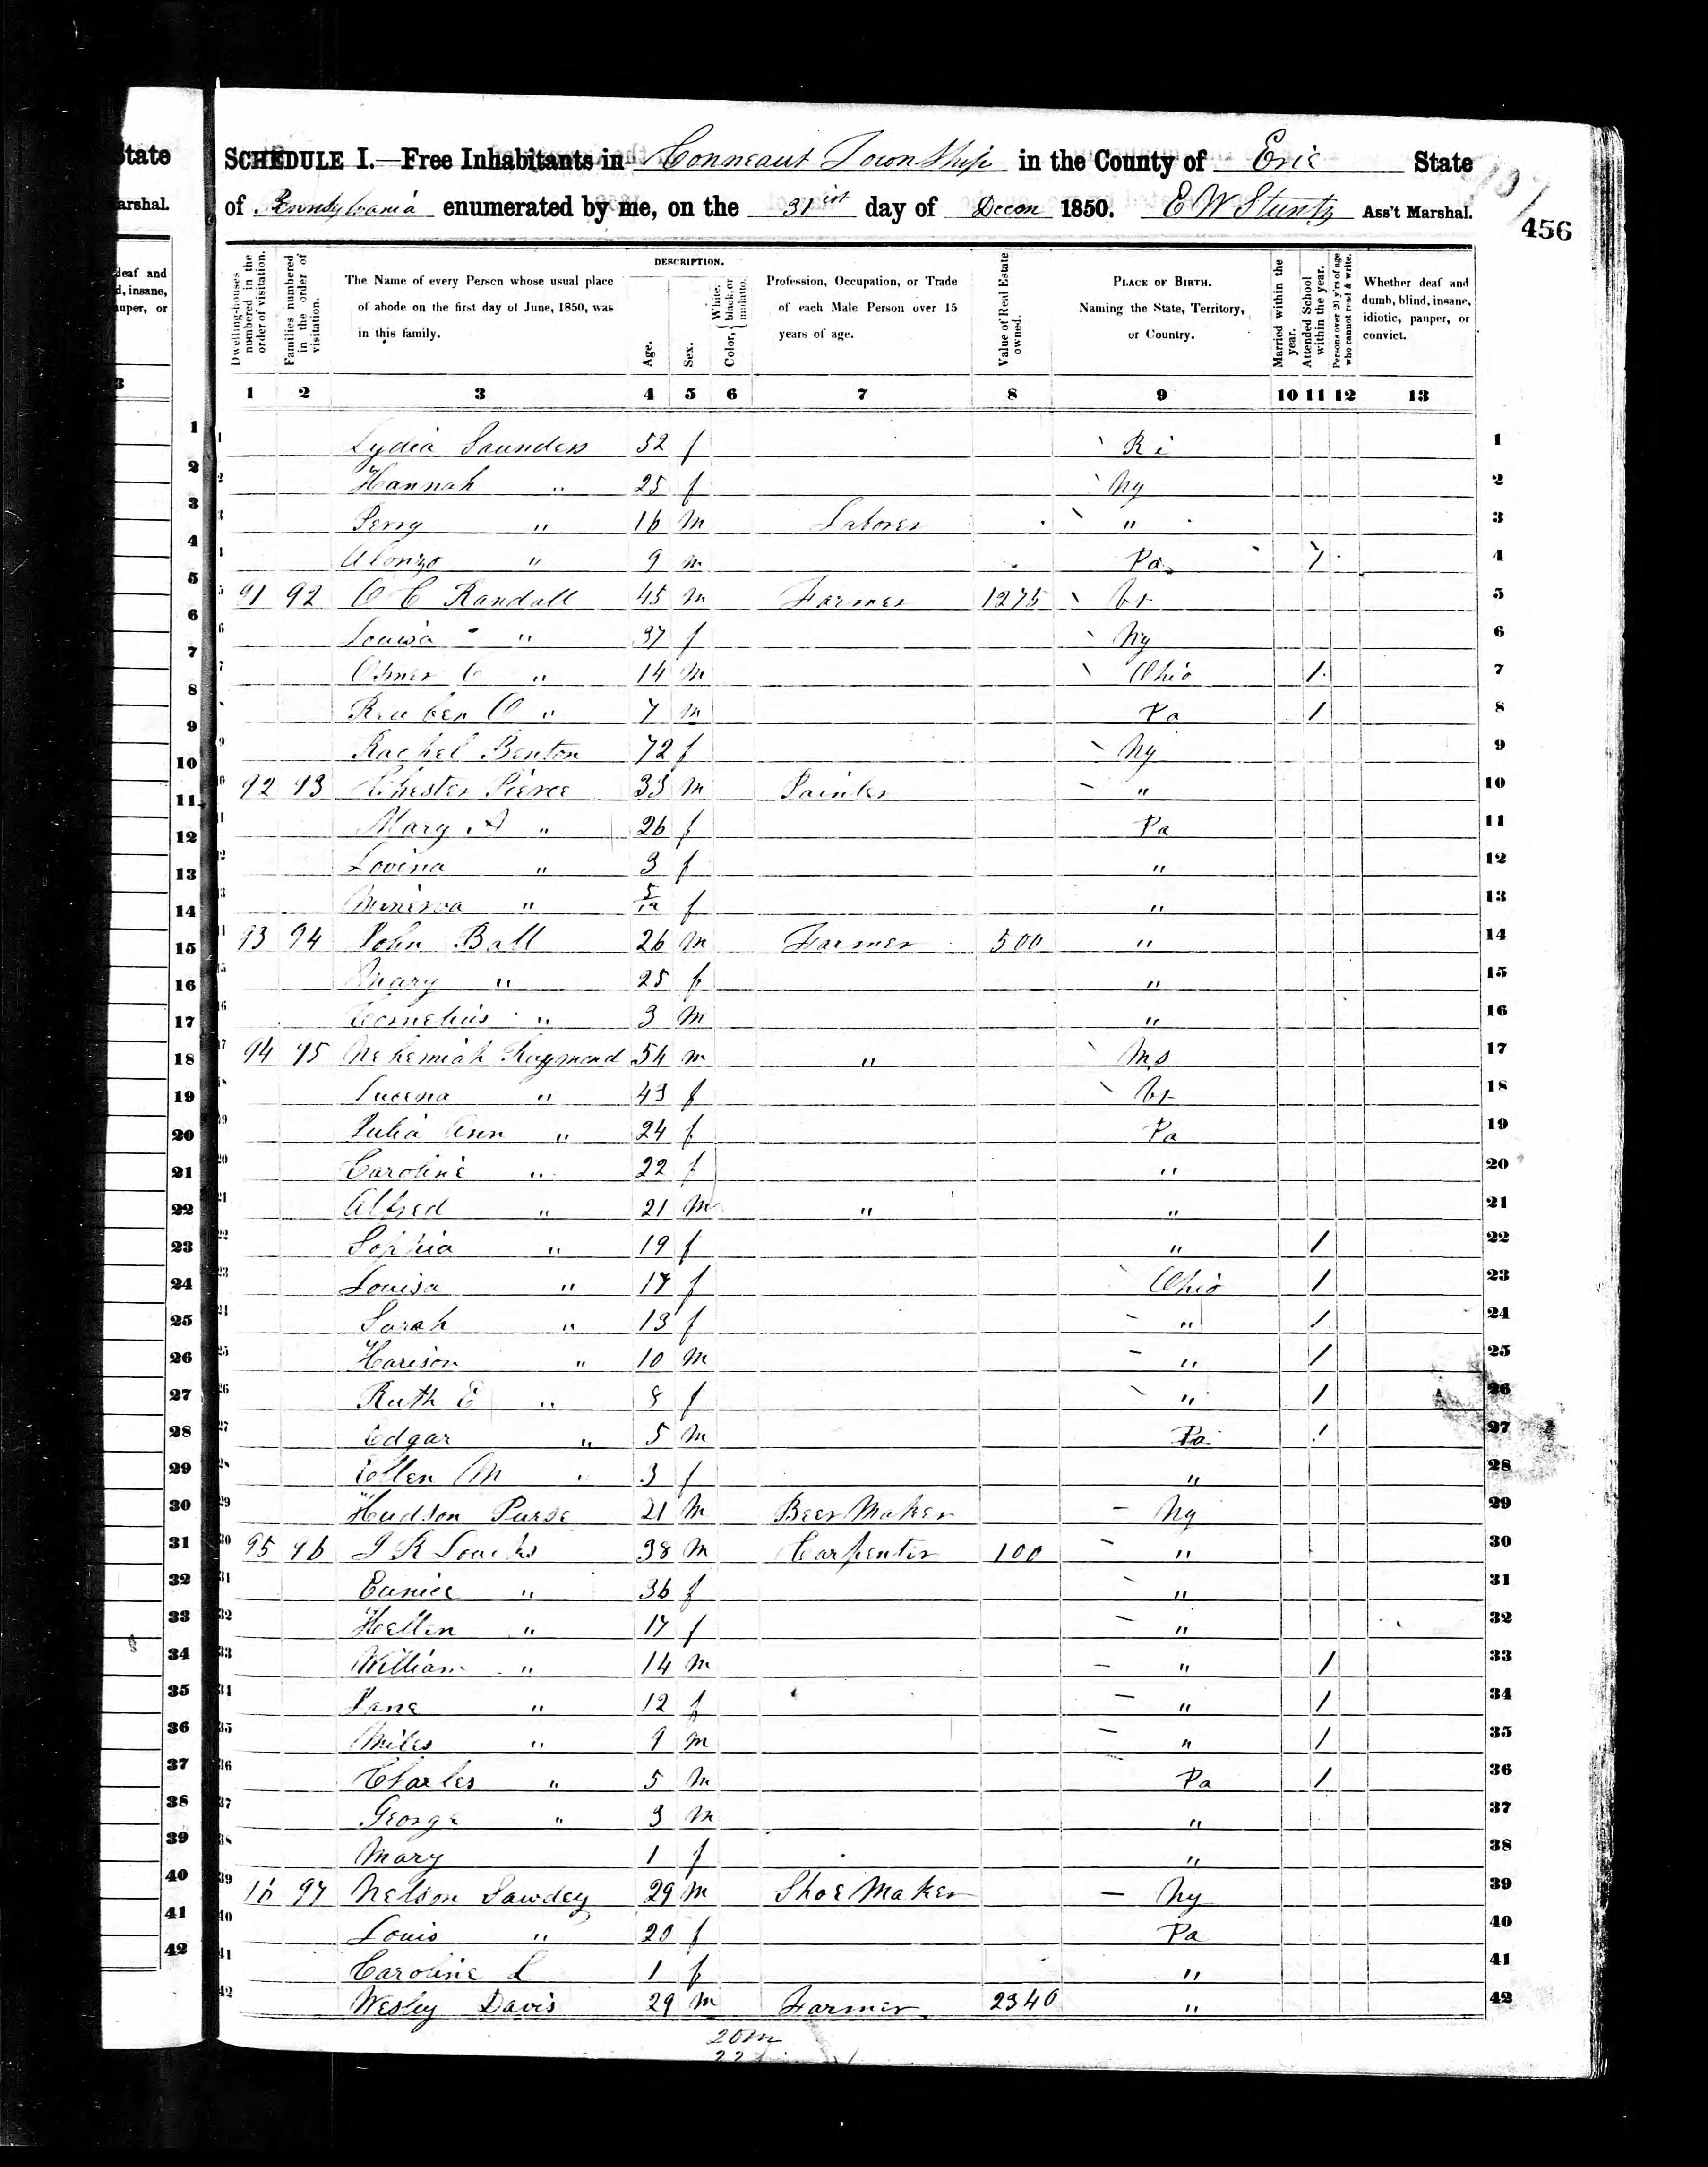 State
arshal.
deaf and
d, insane,
auper, or
SCHEDULE I.—Free Inhabitants in Conneaut Township in the County of Erie State
of Pennsylvania enumerated by me, on the 31st day of Decem 1850. E W Stuntz Ass't Marshal.
456
Dwelling-houses numbered in the order of visitation.
Families numbered in the order of visitation.
The Name of every Person whose usual place of abode on the first day of June, 1850, was in this family.
DESCRIPTION.
Age.
Sex.
Color, White, black, or mulatto.
Profession, Occupation, or Trade of each Male Person over 15 years of age.
Value of Real Estate owned.
PLACE OF BIRTH. Naming the State, Territory, or Country.
Married within the year.
Attended School within the year.
Persons over 20 y'rs of age who cannot read & write.
Whether deaf and dumb, blind, insane, idiotic, pauper, or convict.
1 2 3 4 5 6 7 8 9 10 11 12 13
1 Lydia Saunders 52 f Ri 1
2 Hannah " 25 f Ny 2
3 Perry " 16 m Laborer " 3
4 Alonzo " 9 m Pa 1 4
5 91 92 O C Randall 45 m Farmer 1275 Vt 5
6 Louisa " 37 f Ny 6
7 Osmer C " 14 m Ohio 1 7
8 Reuben O " 7 m Pa 1 8
9 Rachel Benton 72 f Ny 9
10 92 93 Chester Pierce 33 m Painter " 10
11 Mary A " 26 f Pa 11
12 Lovina " 3 f " 12
13 Minerva " 5/12 f " 13
14 93 94 John Ball 26 m Farmer 500 " 14
15 Mary " 25 f " 15
16 Cornelius " 3 m " 16
17 94 95 Nehemiah Raymond 54 m " Ms 17
18 Lucena " 43 f Vt 18
19 Julia Ann " 24 f Pa 19
20 Caroline " 22 f " 20
21 Alfred " 21 m " " 21
22 Sophia " 19 f " 1 22
23 Louisa " 17 f Ohio 1 23
24 Sarah " 13 f " 1 24
25 Harison " 10 m " 1 25
26 Ruth E " 8 f " 1 26
27 Edgar " 5 m Pa 1 27
28 Ellen M " 3 f " 28
29 Hudson Purse 21 m Beer Maker Ny 29
30 95 96 J R Loucks 38 m Carpenter 100 " 30
31 Eunice " 36 f " 31
32 Hellen " 17 f " 32
33 William " 14 m " 1 33
34 Jane " 12 f " 1 34
35 Miles " 9 m " 1 35
36 Charles " 5 m Pa 1 36
37 George " 3 m " 37
38 Mary 1 f " 38
39 97 Nelson Sawdey 29 m Shoe Maker Ny 39
40 Louis " 20 f Pa 40
41 Caroline L 1 f " 41
42 Wesley Davis 29 m Farmer 2340 " 42
20m